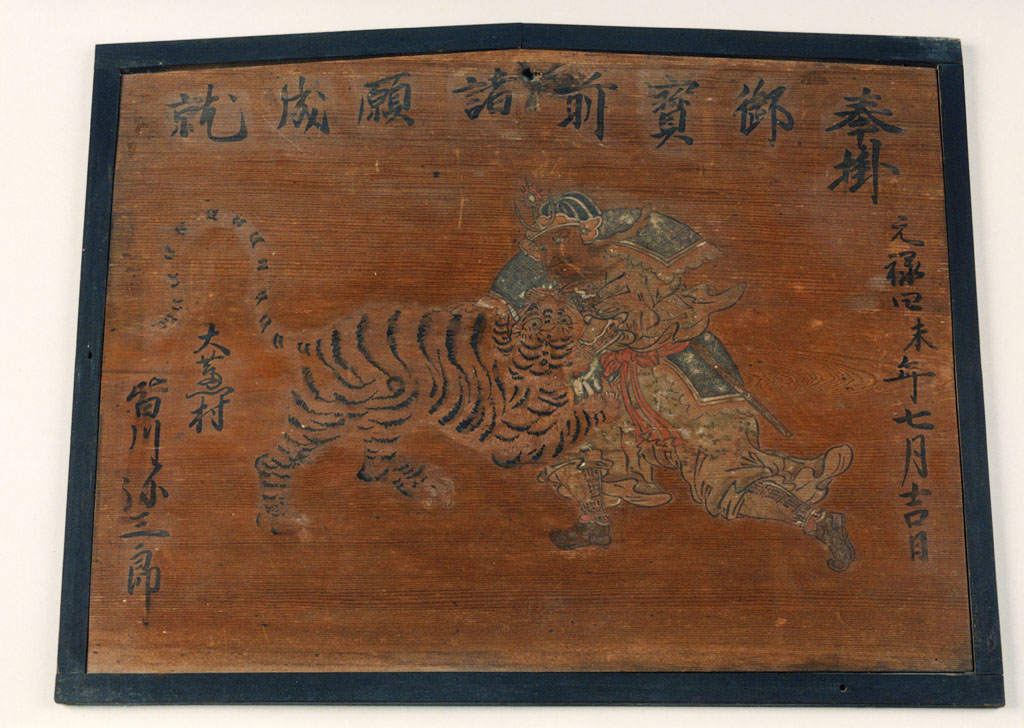 奉掛
御寳前諸願成就
元禄四未年七月吉日
大蔦村
菅川弥三郎